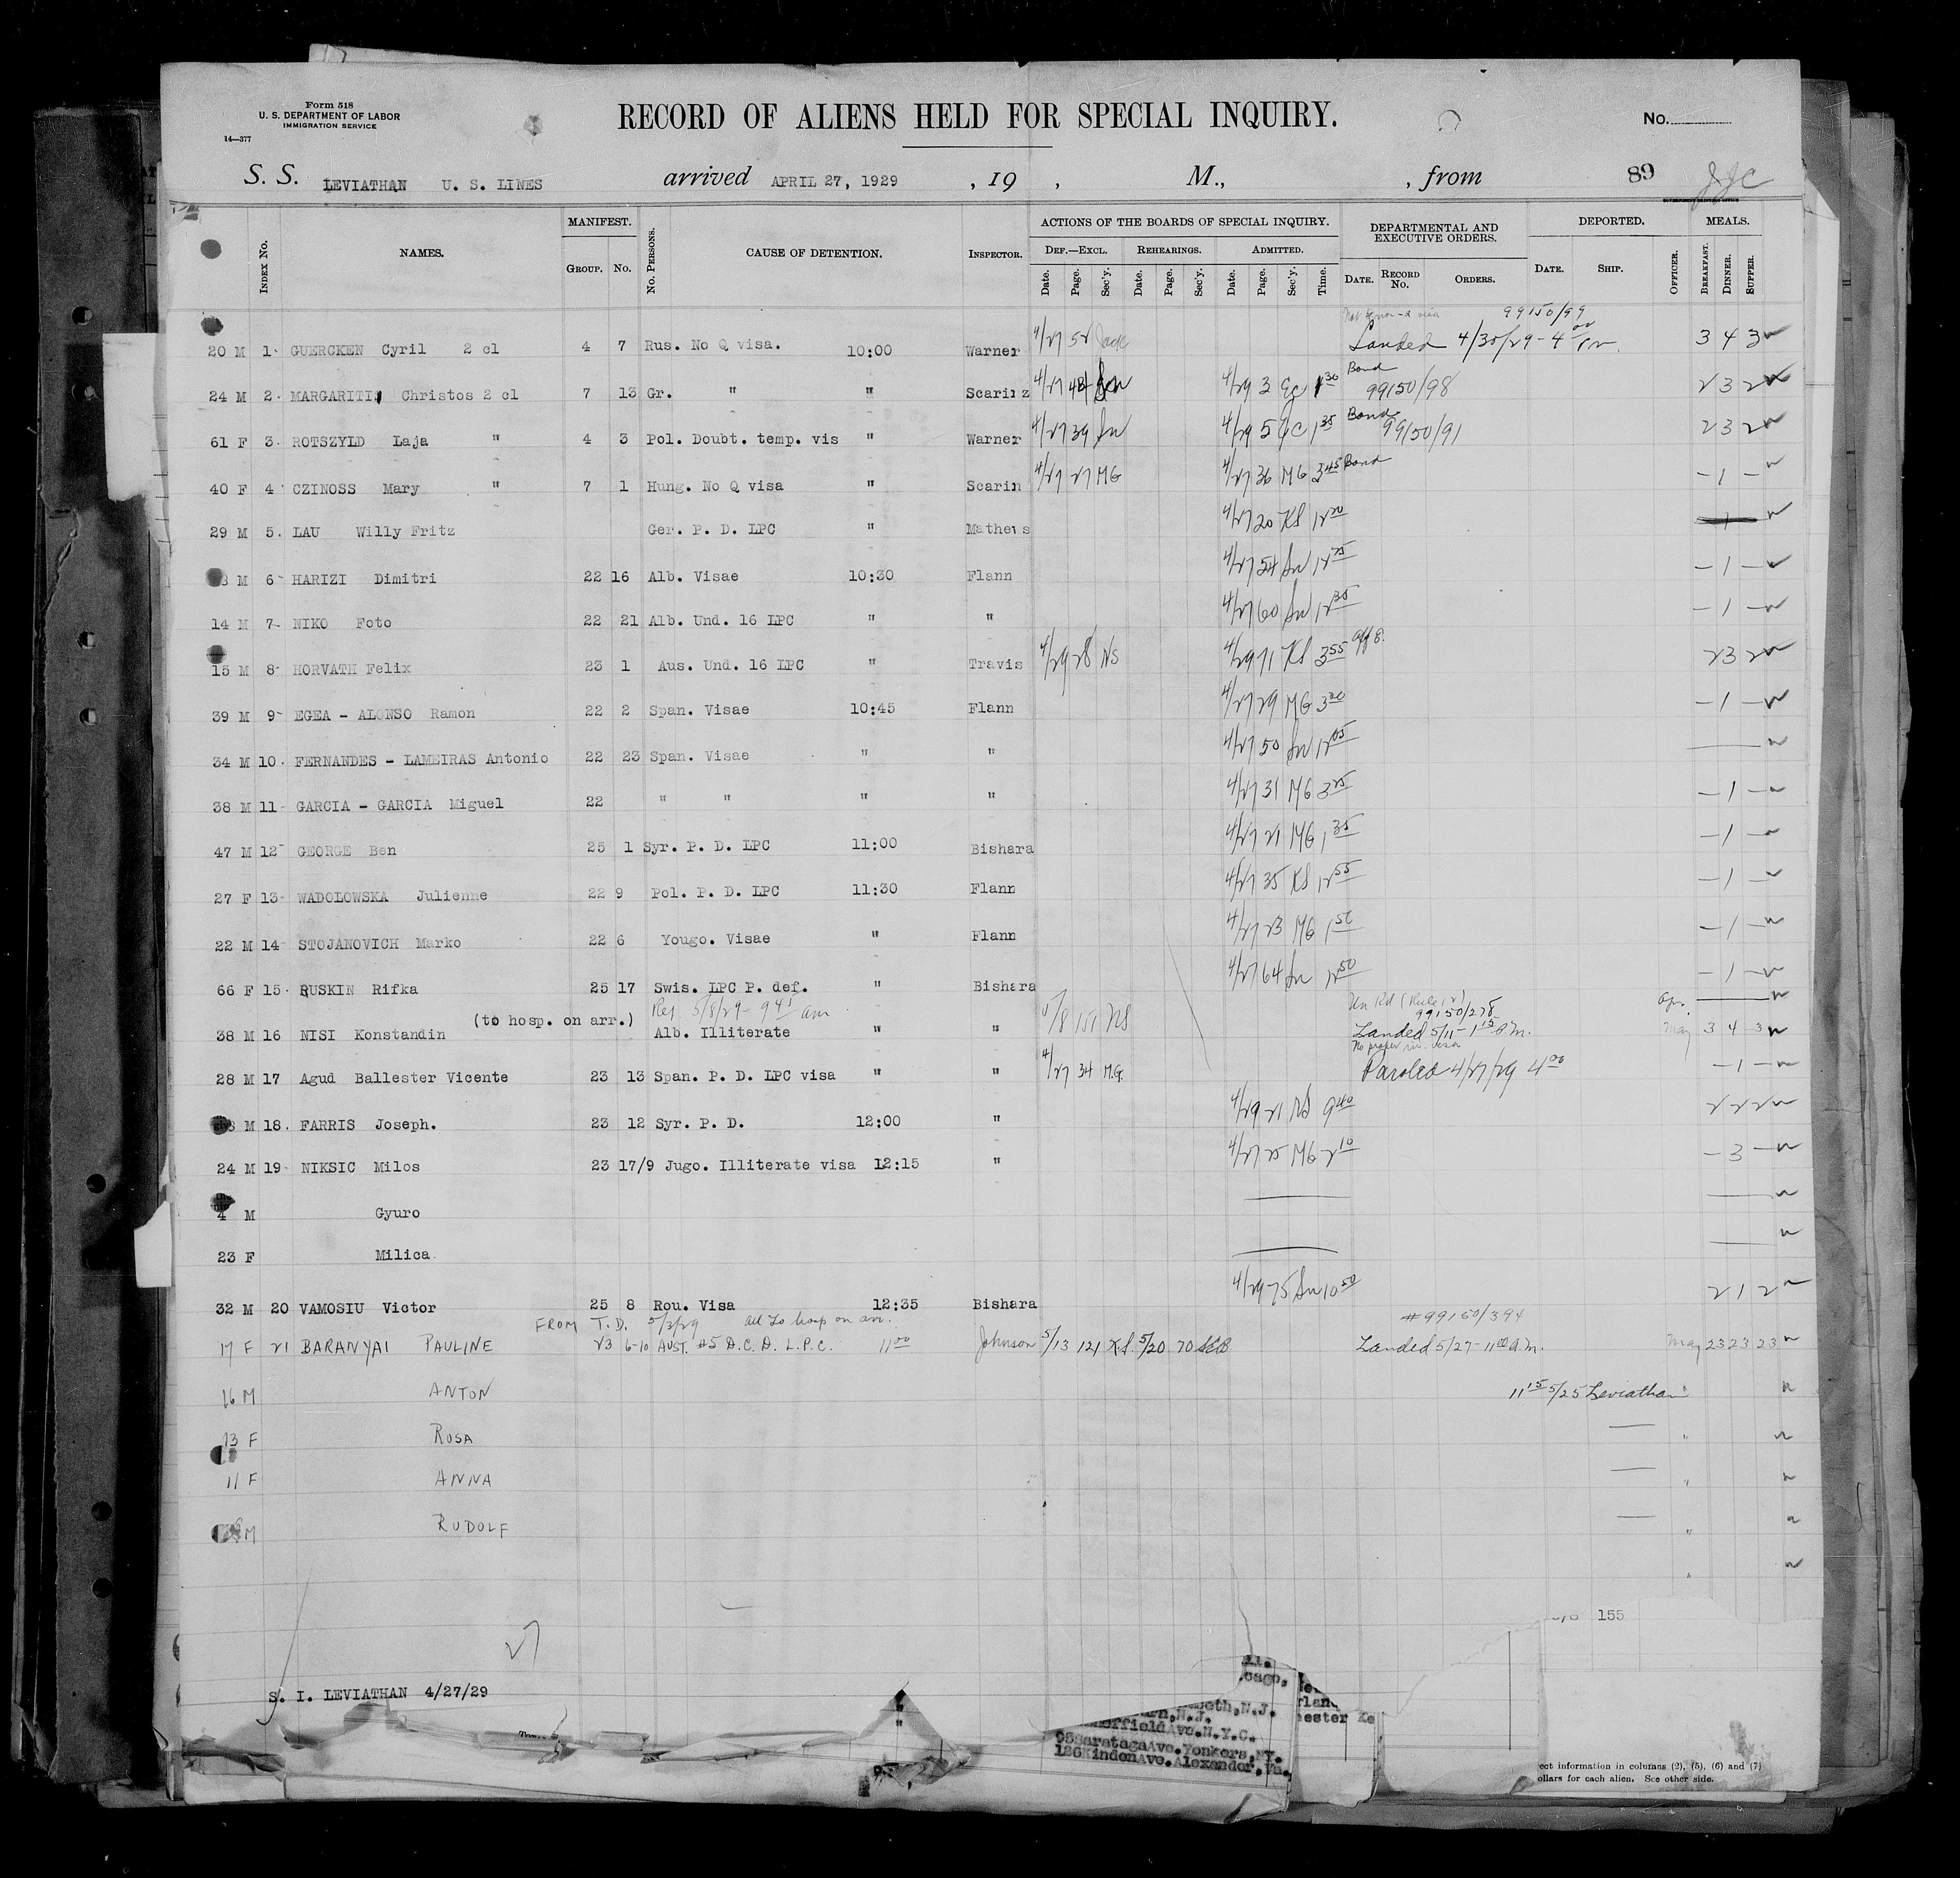 Form 518
U. S. DEPARTMENT OF LABOR
IMMIGRATION SERVICE
14—377
RECORD OF ALIENS HELD FOR SPECIAL INQUIRY.
No.
S. S. LEVIATHAN U. S. LINES arrived APRIL 27, 1929 , 19 , M., , from 89
MANIFEST. ACTIONS OF THE BOARDS OF SPECIAL INQUIRY. DEPARTMENTAL AND EXECUTIVE ORDERS. DEPORTED. MEALS.
Index No. NAMES. GROUP. No. No. PERSONS. CAUSE OF DETENTION. INSPECTOR. DEF.—EXCL. REHEARINGS. ADMITTED.
Date. Page. Sec'y. Date. Page. Sec'y. Date. Page. Sec'y. Time. DATE. RECORD No. ORDERS. DATE. SHIP. OFFICER. BREAKFAST. DINNER. SUPPER.
99150/99
20 M 1 GUERCKEN Cyril 2 cl 4 7 Rus. No Q visa. 10:00 Warner 4/27 52 Landed 4/30/29 - 4 00 3 4 3
Bond
24 M 2 MARGARITIS Christos 2 cl 7 13 Gr. " " Scarinz 4/27 4/29 3 1 30 99150/98 2 3 2
Bond
61 F 3. ROTSZYLD Laja " 4 3 Pol. Doubt. temp. vis " Warner 4/27 39 4/29 5 1 35 99150/91 2 3 2
40 F 4 CZINOSS Mary " 7 1 Hung. No Q visa " Scarin 4/27 27 MG 4/27 36 MG 3 45 Bond – 1 –
29 M 5. LAU Willy Fritz Ger. P. D. LPC " Mathews 4/27 20 KS 12 20
M 6 HARIZI Dimitri 22 16 Alb. Visae 10:30 Flann 4/27 54 – 1 –
14 M 7 NIKO Foto 22 21 Alb. Und. 16 LPC " " 4/27 60 – 1 –
15 M 8 HORVATH Felix 23 1 Aus. Und. 16 LPC " Travis 4/29 28 NS 4/29 71 KS 3 55 2 3 2
39 M 9 EGEA - ALONSO Ramon 22 2 Span. Visae 10:45 Flann 4/27 29 MG 3 00 – 1 –
34 M 10. FERNANDES - LAMEIRAS Antonio 22 23 Span. Visae " " 4/27 50 12 05
38 M 11 GARCIA - GARCIA Miguel 22 " " " " 4/27 31 MG 3 25 – 1 –
47 M 12 GEORGE Ben 25 1 Syr. P. D. LPC 11:00 Bishara 4/27 21 MG 1 35 – 1 –
27 F 13 WADOLOWSKA Julienne 22 9 Pol. P. D. LPC 11:30 Flann 4/27 35 KS 12 55 – 1 –
22 M 14 STOJANOVICH Marko 22 6 Yougo. Visae " Flann 4/27 23 MG 1 50 – 1 –
66 F 15. RUSKIN Rifka 25 17 Swis. LPC P. def. " Bishara 4/27 64 12 50 – 1 –
Res. 5/8/29 - 9 45 am
(to hosp. on arr.)
99150/278
38 M 16 NISI Konstandin Alb. Illiterate " " 5/8 151 NS Landed 5/11 - 1 15 P.M. May 3 4 3
28 M 17 Agud Ballester Vicente 23 13 Span. P. D. LPC visa " " 4/27 34 M.G. Paroled 4/27/29 4 00 – 1 –
M 18. FARRIS Joseph. 23 12 Syr. P. D. 12:00 " 4/29 21 NS 9 40 2 2 2
24 M 19 NIKSIC Milos 23 17/9 Jugo. Illiterate visa 12:15 " 4/27 25 MG 2 10 – 3 –
4 M Gyuro
23 F Milica
32 M 20 VAMOSIU Victor 25 8 Rou. Visa 12:35 Bishara 4/29 75 10 50 2 1 2
FROM T.D. 5/3/29 all to hosp on arr. #99150/394
17 F 21 BARANYAI PAULINE 23 6-10 AUST. #5 D.C.D. L.P.C. 11 00 Johnson 5/13 121 KS 5/20 70 Landed 5/27 - 11 00 A.M. May 23 23 23
16 M ANTON 11 15 5/25 Leviathan "
13 F ROSA "
11 F ANNA "
M RUDOLF "
155
S. I. LEVIATHAN 4/27/29
cago,
beth,N.J.
N.J.
ffieldAve.N.Y.C.
SaratogaAve.Yonkers,NY.
126LindenAve.Alexander,Va.
ect information in columns (2), (5), (6) and (7)
ollars for each alien. See other side.